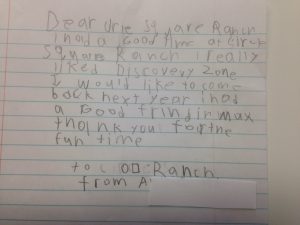 Dear Circle Square Ranch
I had a Good time at Circle
Square Ranch I really
liked Discovery Zone
I would like to come
back next year I had
a Good frind in max
thank you forthe
fun time
to C O□ Ranch
from A